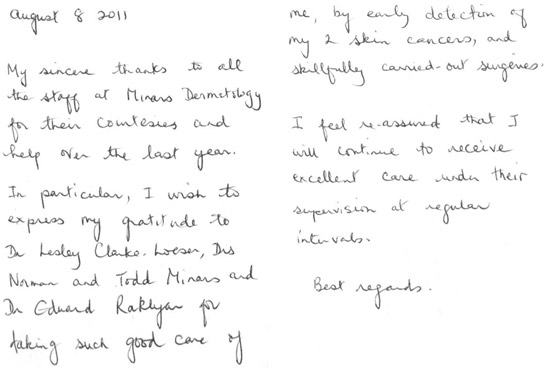 August 8 2011
My sincere thanks to all
the staff at Minars Dermatology
for their courtesies and
help over the last year.
In particular, I wish to
express my gratitude to
Dr Lesley Clarke-Loeser, Drs
Norman and Todd Minars and
Dr Eduard Raklyar for
taking such good care of
me, by early detection of
my 2 skin cancers, and
skillfully carried-out surgeries.
I feel re-assured that I
will continue to receive
excellent care under their
supervision at regular
intervals.
Best regards.